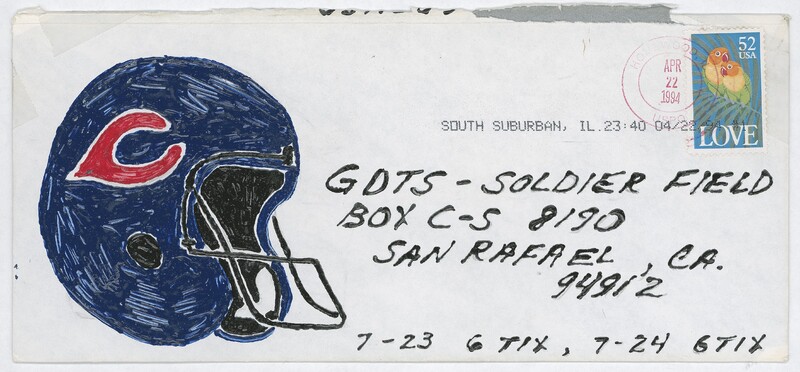 52
USA
APR
22
1994
SOUTH SUBURBAN, IL. 23:40 04/22
LOVE
C
GDTS - SOLDIER FIELD
BOX C-S 8190
SAN RAFAEL, CA.
94912
7-23 6 TIX, 7-24 6 TIX